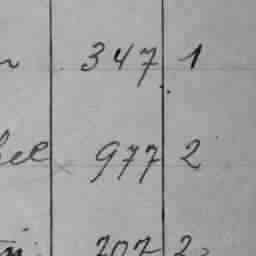 347 1
977 2
707 2